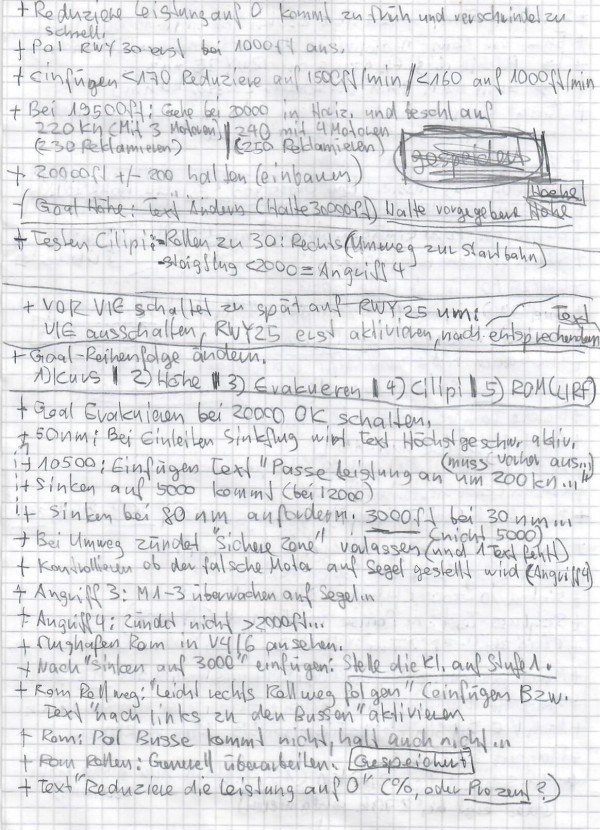 + Reduziere Leistung auf 0 kommt zu früh und verschwindet zu
schnell.
+ Pol RWY 30 erst bei 1000ft aus.
+ einfügen <170 Reduziere auf 1500ft/min / <160 auf 1000ft/min
+ Bei 19500ft: Gehe bei 20000 in Horiz. und beschl. auf
220 kn (Mit 3 Motoren) | 240 mit 4 Motoren
(230 Reklamieren) | (250 Reklamieren)
gespeichert
+ 20000ft +/- 200 halten (einbauen)
Hoehe
Goal Höhe: Text ändern (Halte 30000ft) Halte vorgegebene Höhe
+ Testen Cilipi: - Rollen zu 30: Rechts (Umweg zur Startbahn)
- Steigflug <2000 = Angriff 4
+ VOR VIE schaltet zu spät auf RWY 25 um: Text
VIE ausschalten, RWY25 erst aktivieren, nach entsprechendem
+ Goal-Reihenfolge ändern.
1) Kurs | 2) Höhe | 3) Evakuieren | 4) Cilipi | 5) ROM (LIRF)
+ Goal Evakuieren bei 20000 OK schalten.
+ 50nm: Bei Einleiten Sinkflug wird Text Höchstgeschw. aktiv.
(muss vorher aus...)
+ 10500: Einfügen Text "Passe Leistung an um 200 kn..."
+ Sinken auf 5000 kommt (bei 12000)
+ Sinken bei 80 nm anfordern. 3000ft bei 30 nm...
(nicht 5000)
+ Bei Umweg zündet "sichere Zone" verlassen (und 1 Text fehlt)
+ Kontrollieren ob der falsche Motor auf Segel gestellt wird (Angriff 4)
+ Angriff 3: M1-3 überwachen auf Segel...
+ Angriff 4: Zündet nicht >2000ft...
+ Flughafen Rom in V4/6 ansehen.
+ Nach "Sinken auf 3000" einfügen: Stelle die Kl. auf Stufe 1.
+ Rom Rollweg: "Leicht rechts Rollweg folgen" (einfügen Bzw.
Text "nach links zu den Bussen" aktivieren
+ Rom: Pol Busse kommt nicht, halt auch nicht...
+ Rom Rollen: Generell überarbeiten. Gespeichert
+ Text "Reduziere die Leistung auf 0" (%, oder Prozent?)